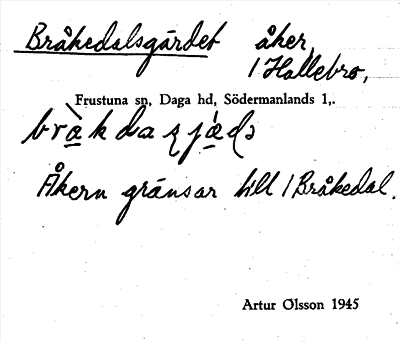 Bråkedalsgärdet åker,
1 Hallebro,
Frustuna sn, Daga hd, Södermanlands l,.
Åkern gränsar till 1 Bråkedal.
Artur Olsson 1945